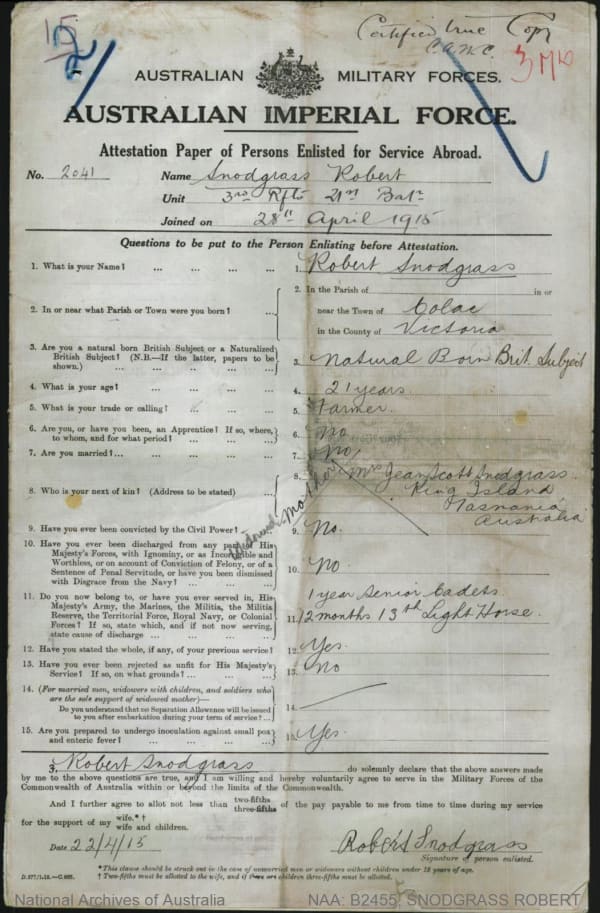 15
2
Certified true Copy
C.A.W.C.
AUSTRALIAN MILITARY FORCES.
AUSTRALIAN IMPERIAL FORCE.
Attestation Paper of Persons Enlisted for Service Abroad.
No. 2041 Name Snodgrass Robert
Unit 3rd Rfts 21st Batn
Joined on 28th April 1915
Questions to be put to the Person Enlisting before Attestation.
1. What is your Name? ... ... ... ... 1. Robert Snodgrass
2. In or near what Parish or Town were you born? ... 2. In the Parish of in or
near the Town of Colac
in the County of Victoria
3. Are you a natural born British Subject or a Naturalized
British Subject? (N.B.—If the latter, papers to be
shown.) ... ... ... ... ... 3. Natural Born Brit. Subject
4. What is your age? ... ... ... ... 4. 21 years
5. What is your trade or calling? ... ... ... 5. Farmer.
6. Are you, or have you been, an Apprentice? If so, where,
to whom, and for what period? ... ... ... 6. No
7. Are you married?... ... ... ... ... 7. No
8. Who is your next of kin? (Address to be stated) ... 8. Mrs Jean Scott Snodgrass
King Island
Tasmania
Australia
Widowed Mother
9. Have you ever been convicted by the Civil Power? ... 9. No.
10. Have you ever been discharged from any part of His
Majesty's Forces, with Ignominy, or as Incorrigible and
Worthless, or on account of Conviction of Felony, or of a
Sentence of Penal Servitude, or have you been dismissed
with Disgrace from the Navy? ... ... ... 10. No
11. Do you now belong to, or have you ever served in, His
Majesty's Army, the Marines, the Militia, the Militia
Reserve, the Territorial Force, Royal Navy, or Colonial
Forces? If so, state which, and if not now serving,
state cause of discharge ... ... ... ...
1 year Senior Cadets.
11. 12 months 13th Light Horse.
12. Have you stated the whole, if any, of your previous service? 12. Yes.
13. Have you ever been rejected as unfit for His Majesty's
Service? If so, on what grounds? ... ... ... 13. No
14. (For married men, widowers with children, and soldiers who
are the sole support of widowed mother)—
Do you understand that no Separation Allowance will be issued
to you after embarkation during your term of service?... 14.
15. Are you prepared to undergo inoculation against small pox
and enteric fever? ... ... ... ... 15. Yes.
I, Robert Snodgrass do solemnly declare that the above answers made
by me to the above questions are true, and I am willing and hereby voluntarily agree to serve in the Military Forces of the
Commonwealth of Australia within or beyond the limits of the Commonwealth.
And I further agree to allot not less than two-fifths three-fifths of the pay payable to me from time to time during my service
for the support of my wife.*† wife and children.
Date 22/4/15 Robert Snodgrass
Signature of person enlisted.
*This clause should be struck out in the case of unmarried men or widowers without children under 18 years of age.
† Two-fifths must be allotted to the wife, and if there are children three-fifths must be allotted.
National Archives of Australia NAA: B2455, SNODGRASS ROBERT